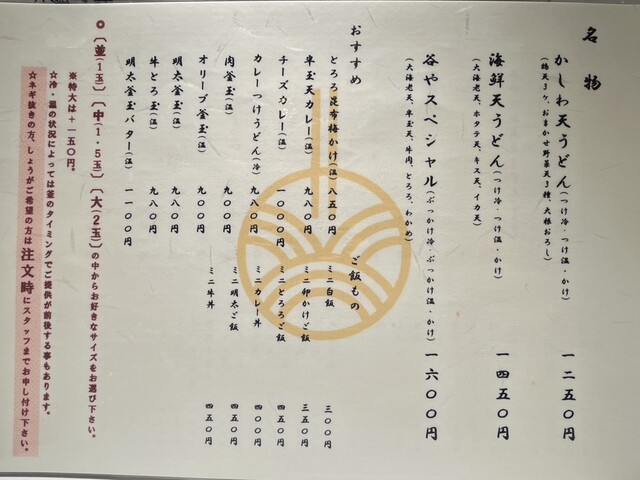 名物
かしわ天うどん(つけ冷・つけ温・かけ) 一二五〇円
(鶏天3ケ、おまかせ野菜天3種、大根おろし)
海鮮天うどん(つけ冷・つけ温・かけ) 一四五〇円
(大海老天、ホタテ天、キス天、イカ天)
谷やスペシャル(ぶっかけ冷・ぶっかけ温・かけ) 一六〇〇円
(大海老天、半玉天、牛肉、とろろ、わかめ)
おすすめ
とろろ昆布梅かけ(温) 八五〇円
半玉天カレー(温) 九八〇円
チーズカレー(温) 一〇〇〇円
カレーつけうどん(冷) 九八〇円
肉釜玉(温) 九〇〇円
オリーブ釜玉(温) 九〇〇円
明太釜玉(温) 九八〇円
牛とろ玉(温) 九八〇円
明太釜玉バター(温) 一一〇〇円
ご飯もの
ミニ白飯 三〇〇円
ミニ卵かけご飯 三五〇円
ミニとろろご飯 四五〇円
ミニカレー丼 四〇〇円
ミニ明太ご飯 四五〇円
ミニ牛丼 四五〇円
◎〔並(1玉)〕〔中(1・5玉)〕〔大(2玉)〕の中からお好きなサイズをお選び下さい。
※特大は+一五〇円。
☆冷・温の状況によっては釜のタイミングでご提供が前後する事もあります。
☆ネギ抜きの方、しょうがご希望の方は注文時にスタッフまでお申し付け下さい。